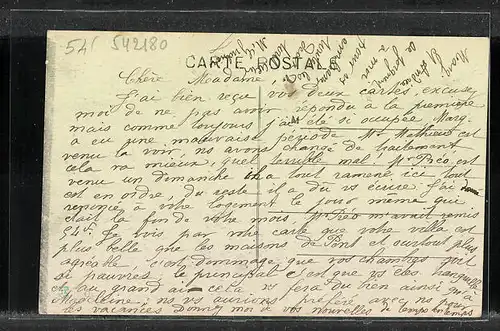 54f 542180
CARTE POSTALE
Chère Madame,
J'ai bien reçu vos deux cartes, excusez
moi de ne pas avoir répondu à la première
mais comme toujours j'ai été si occupée Marg.
a eu une mauvaise période Mr Mathieu est
venu la voir ns avons changé de traitement
cela va mieux, quel terrible mal! Mr Préo est
venu un dimanche on a tout ramené ici tout
est en ordre, du reste il a dû vs écrire. J'ai
renoncé à votre logement le jour même qui
était la fin de votre mois. Mr Préo m'avait remis
54f. Je vois par votre carte que votre villa est
plus belle que les maisons de Pont et surtout plus
agréable c'est dommage que vos chambres soit
si pauvres le principal c'est que vs êtes
et au grand air cela vs fera du bien ainsi qu'à
Madeleine; ns vs aurions préféré avec ns
les vacances Donnez moi de vos nouvelles de temps en temps